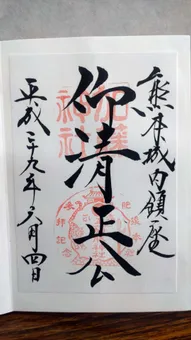 熊本城内鎮座
仰清正公
平成二十九年六月四日
加藤
神社